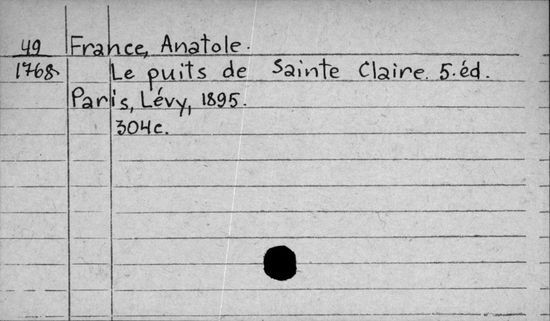 49 France, Anatole.
1768 Le puits de Sainte Claire. 5.éd.
Paris, Lévy, 1895.
304c.